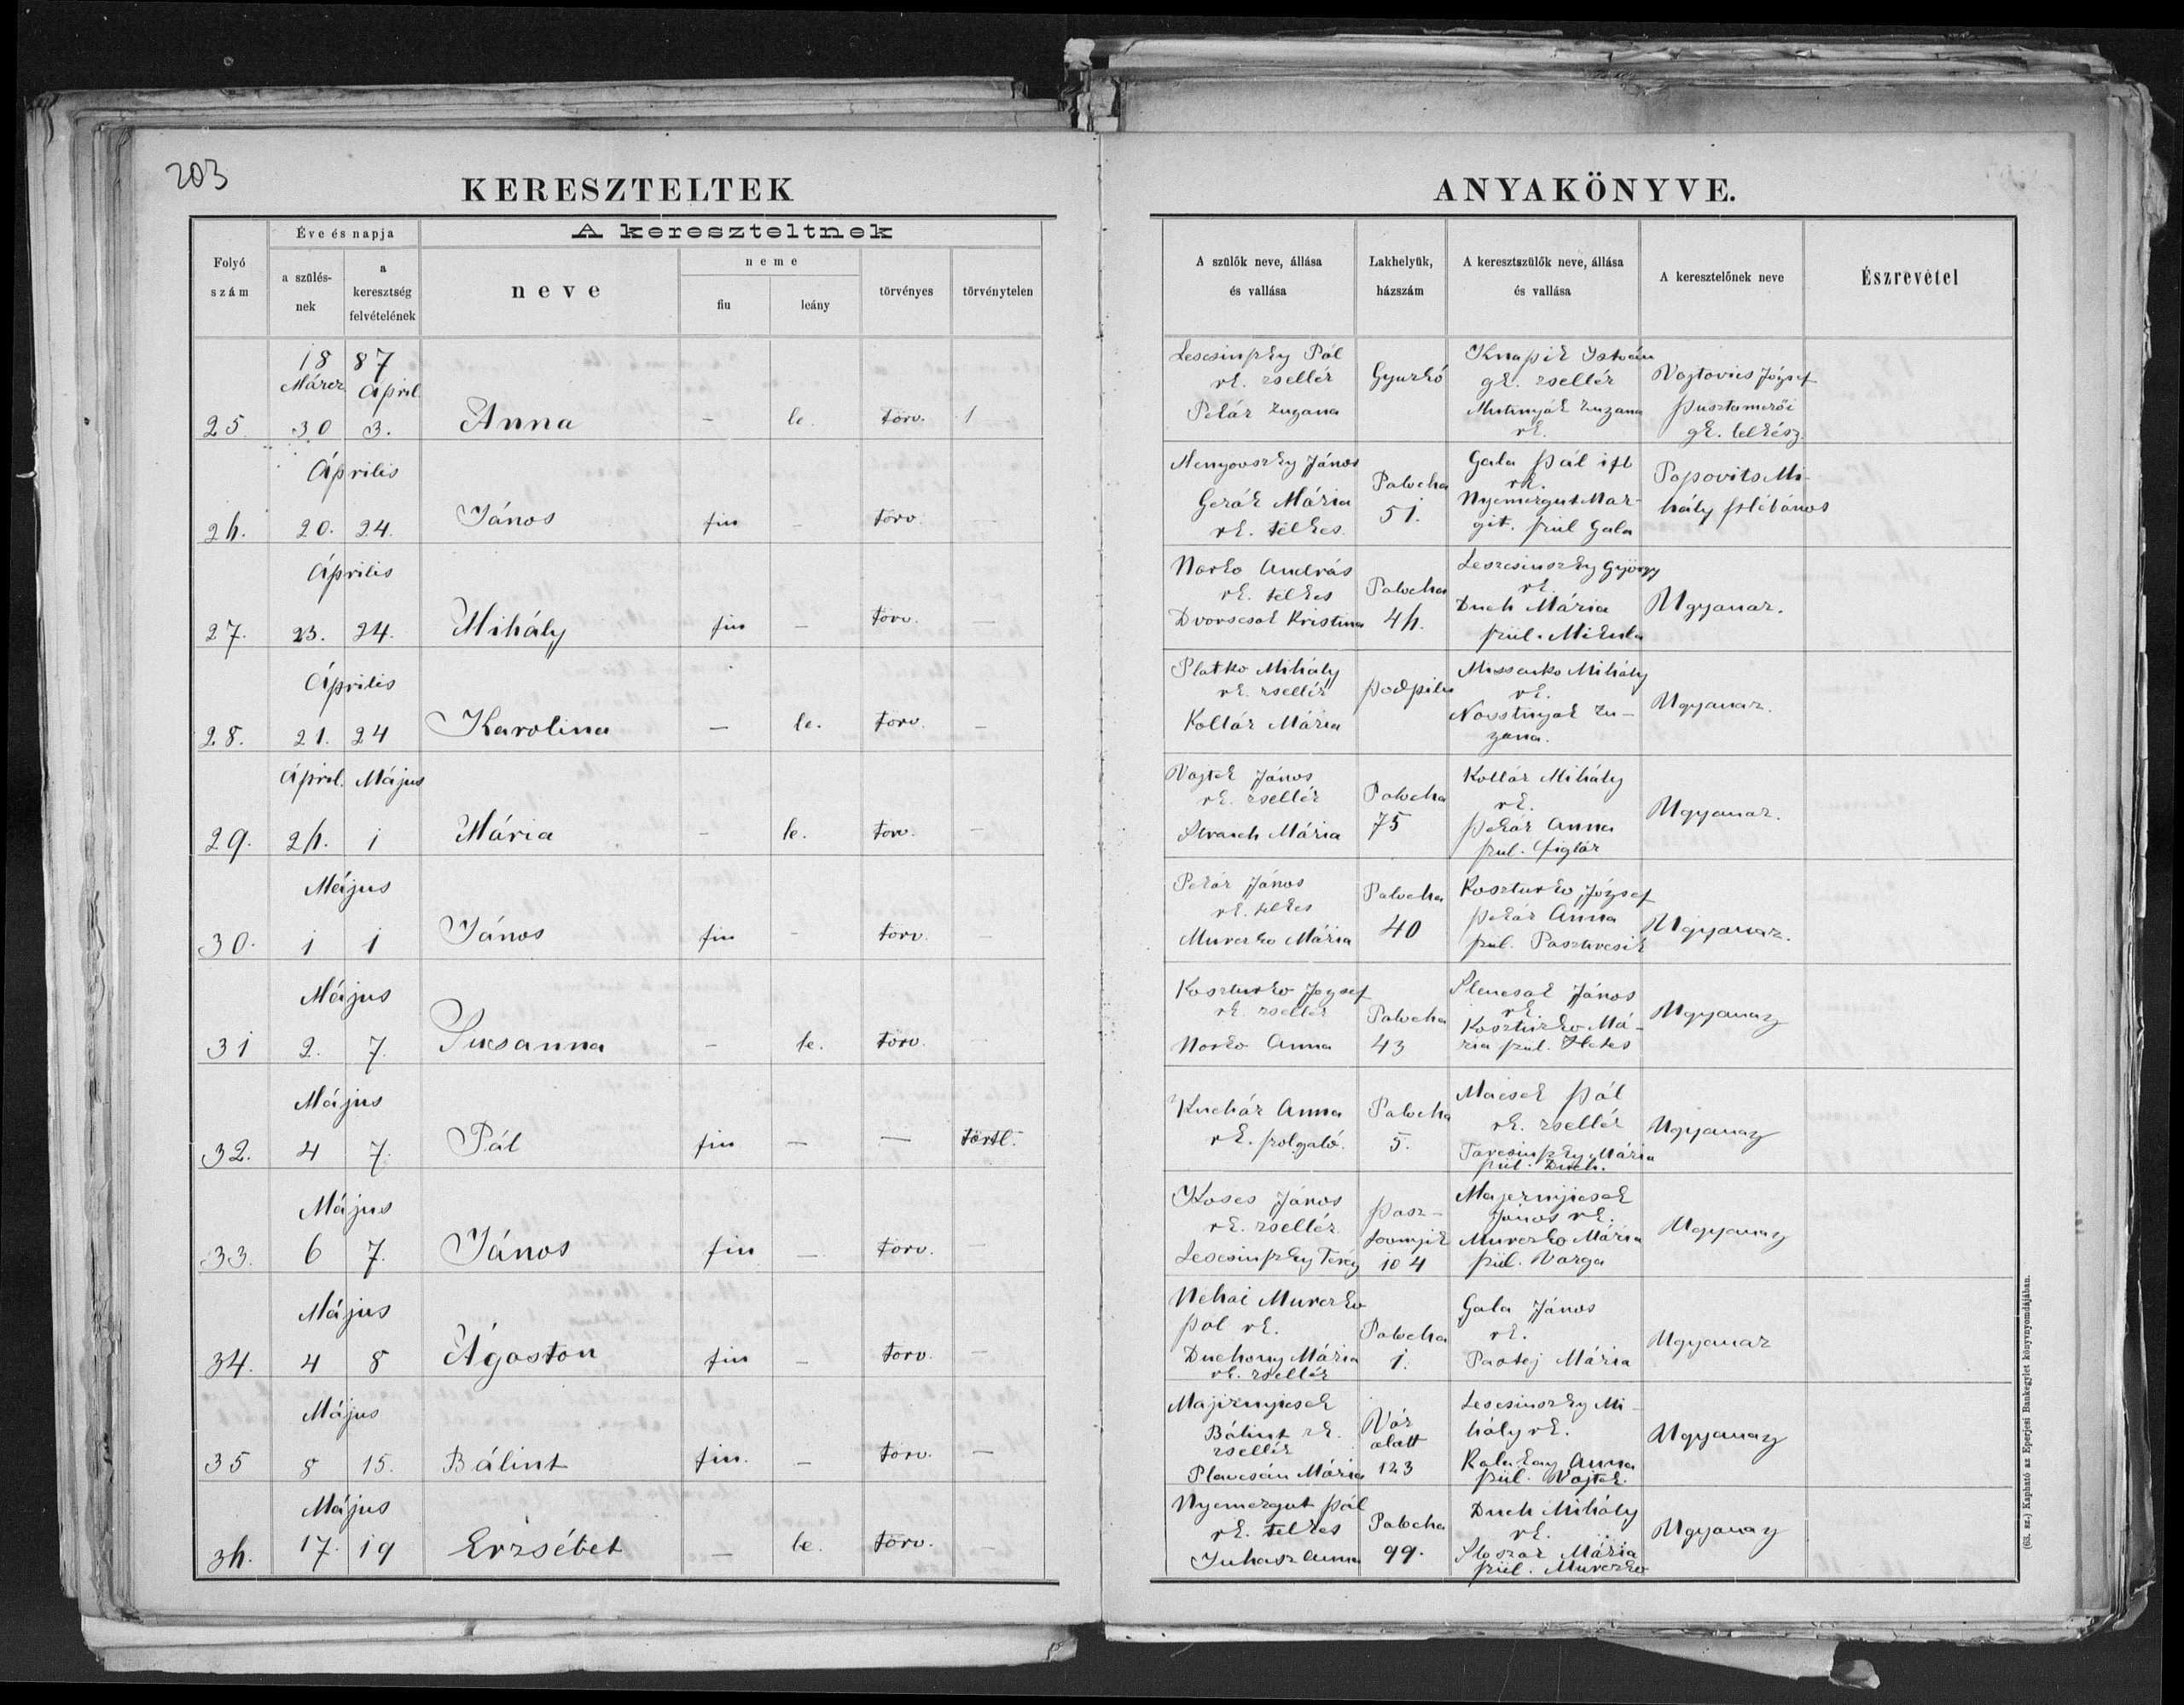 203
KERESZTELTEK
ANYAKÖNYVE.
Folyó szám
Éve és napja
a születés-
nek
a keresztség felvételének
A kereszteltnek
neve
neme
fiu
leány
törvényes
törvénytelen
A szülők neve, állása és vallása
Lakhelyük, házszám
A keresztszülők neve, állása és vallása
A keresztelőnek neve
Észrevétel
1887
25. Márcz 30 April. 3. Anna – le. törv. 1
Lescsinszky Pál rk. zsellér Pekár Zuzana
Gyurkó
Knapik István gk. zsellér Mutinyák Zuzana rk.
Vojtovics József pusztamezői gk. lelkész.
26. Április 20. 24. János fiu – törv. –
Menyovszky János Gerák Mária rk. telkes.
Palocha 51.
Gala Pál ifl rk. Nyemergut Margit. szül Gala
Popovits Mihály plébános
27. Április 23. 24. Mihály fiu – törv. –
Norko András rk. telkes Dvorscsak Kristina
Palocha 46.
Leszcsinszky György rk. Duch Mária szül. Mikula
Ugyanaz.
28. Április 21. 24 Karolina – le. törv. –
Platko Mihály rk. zsellér Kollár Mária
Podpilis
Missanko Mihály rk. Novstnyak Zuzana.
Ugyanaz.
29. Ápril. 26. Május 1 Mária – le. törv. –
Vojtek János rk. zsellér Strasch Mária
Palocha 75
Kollár Mihály rk. Pekár Anna szül. Figlár
Ugyanaz.
30. Május 1 1 János fiu – törv. –
Pekár János rk. telkes Murczko Mária
Palocha 40
Koszturko József Pekár Anna szül. Paszurcsik
Ugyanaz.
31 Május 2. 7. Susanna – le. törv. –
Koszturko József rk. zsellér Norko Anna
Palocha 43
Slencsak János rk. Koszturko Mária szül. Hetes
Ugyanaz
32. Május 4 7. Pál fiu – – törtl.
Kuchár Anna rk. szolgáló.
Palocha 5.
Macsek Pál rk. zsellér Tarcsinszky Mária szül. Duch.
Ugyanaz
33. Május 6 7. János fiu – törv. –
Koscs János rk. zsellér Lescsinszky Teréz
Paszlovnyik 104
Majernyicsek János rk. Murczko Mária szül. Varga
Ugyanaz
34. Május 4 8 Ágoston fiu – törv. –
Nehai Murczko Pál rk. Duchony Mária rk. zsellér
Palocha 1.
Gala János rk. Pastej Mária
Ugyanaz
35 Május 8 15. Bálint fiu. – törv. –
Majernyicsek Bálint rk. zsellér Plavcsán Mária
Vár alatt 123
Lescsinszky Mihály rk. Kalakay Anna szül. Vojtek.
Ugyanaz
36. Május 17. 19 Erzsébet – le. törv. –
Nyemergut Pál rk. telkes Juhasz Anna
Palocha 99.
Duch Mihály rk. Sloszar Mária szül. Murczko
Ugyanaz
(63. sz.) Kapható az Eperjesi Bankegylet könyvnyomdájában.